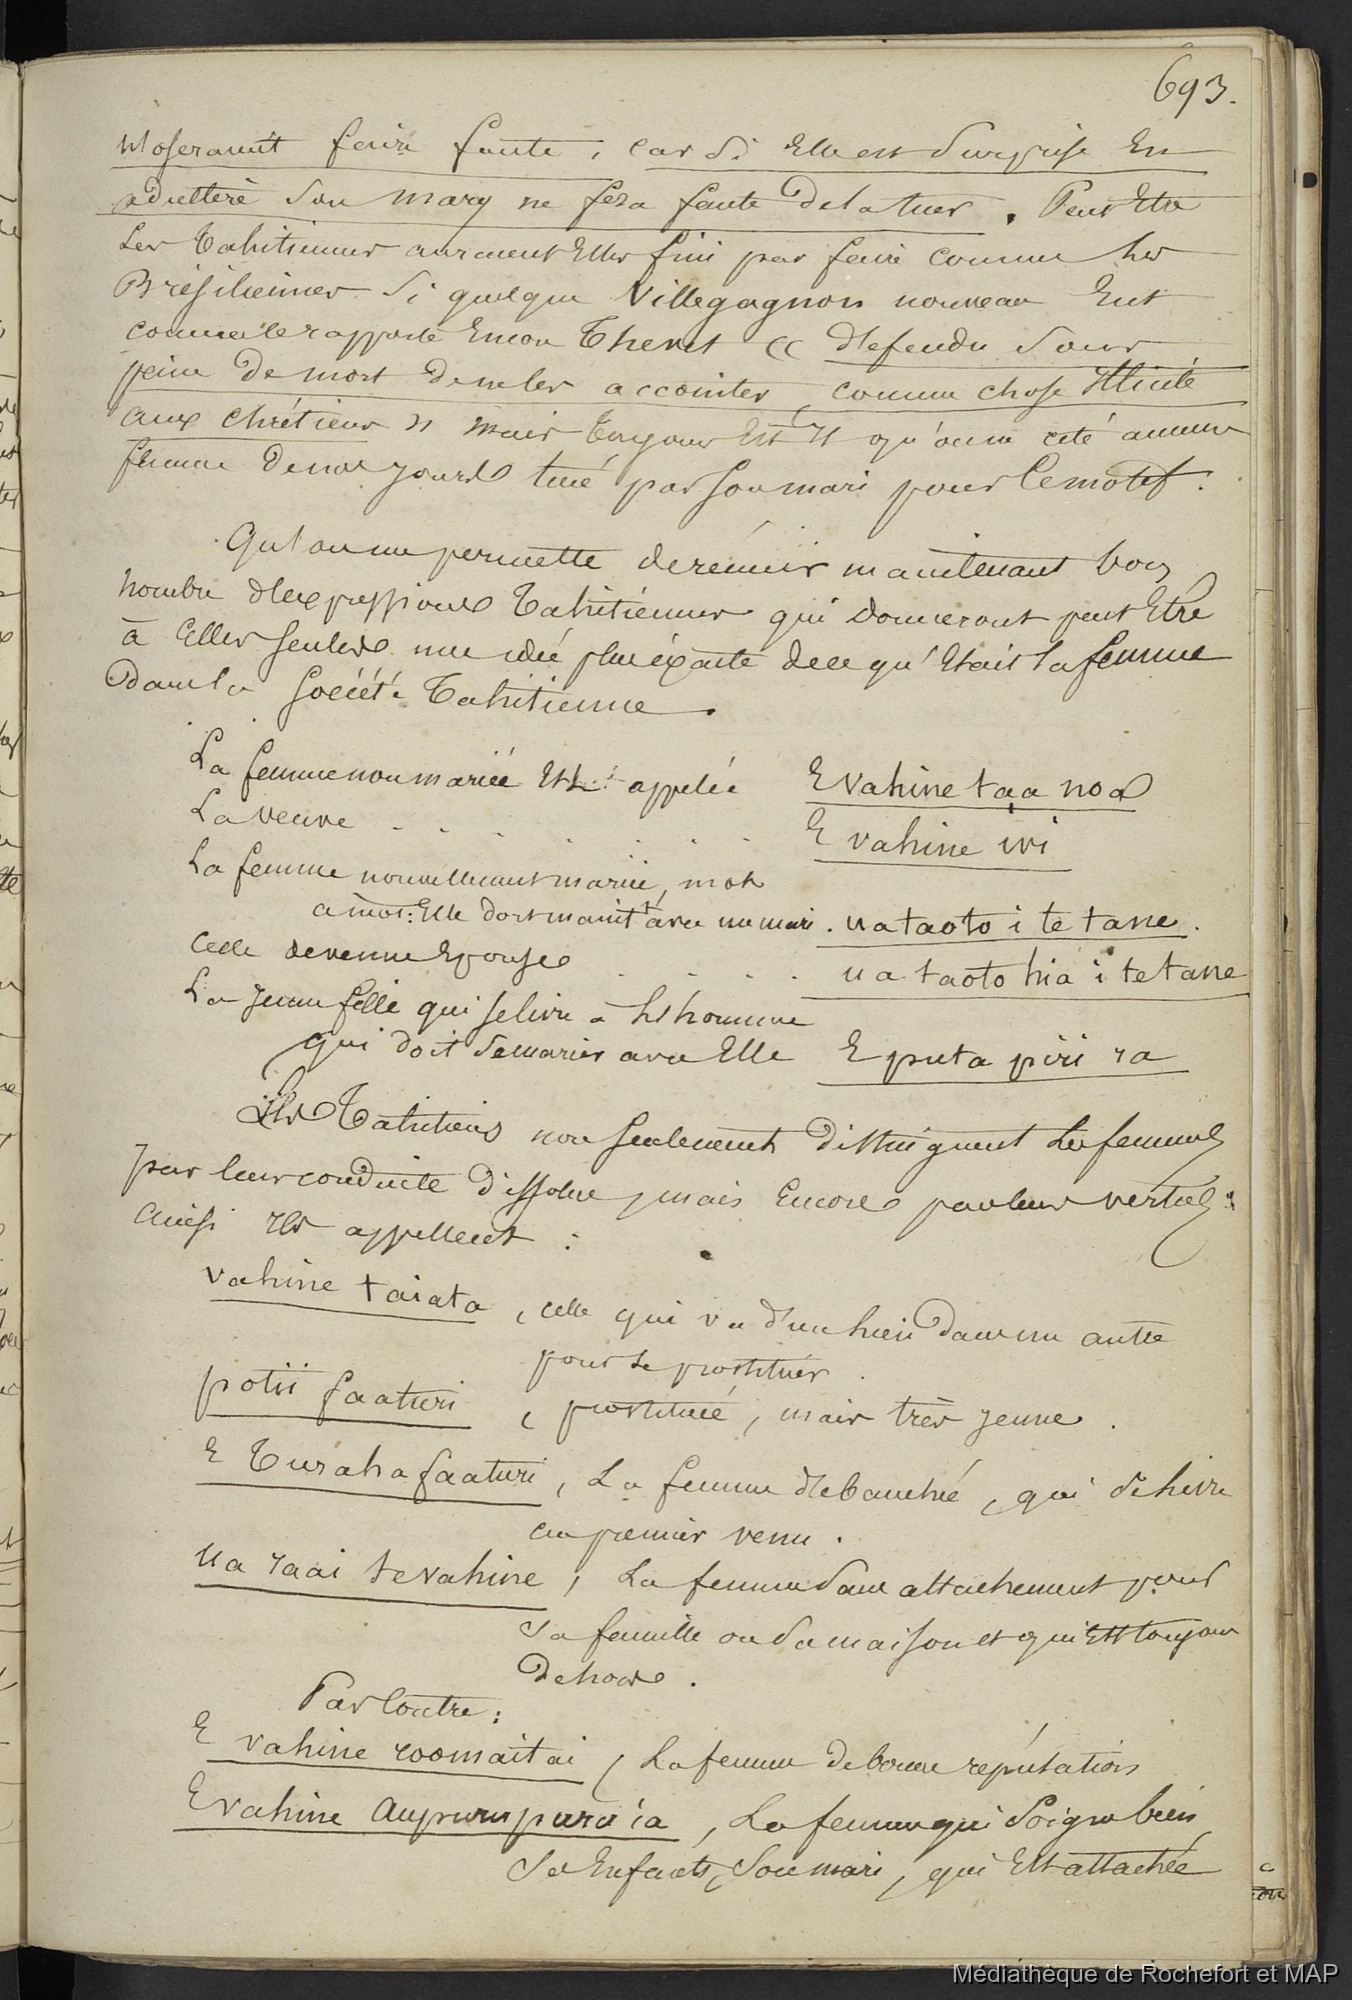 693.
n'oseraient faire faute, car si Elle est surprise En
adultere son mary ne fera faute de la tuer. Peut Etre
Les Tahitiennes auraient Elles fini par faire comme les
Brésiliennes si quelque Villegagnon nouveau Eut
comme le rapporte Encore Thevet « défendu sous
peine de mort de ne les accointer, comme chose Illicite
aux chrétiens » Mais toujours Est Il qu'on a cité aucune
femme de nos jours tué par son mari pour ce motif.
Qu'on me permette de réunir maintenant bon
nombre d'expressions Tahitiennes qui donneront peut Etre
à Elles seules une idée plus éxacte de ce qu'Etait la femme
dans la société Tahitienne.
La femme non mariée Est appelée E Vahine taa noa
La veuve . . . . . . . E vahine ivi
La femme nouvellement mariée, mot
à mot: Elle dort maint^t avec un mari. ua taoto i te tane.
Celle devenue Epouse . . . . ua taoto hia i te tane
La jeune fille qui se livre à l'homme
qui doit se marier avec Elle E puta piri ra
Les Tahitiens non seulement distinguent les femmes
par leur conduite dissolue, mais Encore par leurs vertus:
Ainsi Ils appellent :
vahine taiata, celle qui va d'un lieu dans un autre
pour se prostituer.
potii faaturi, prostituée, mais très jeune.
E Turaha faaturi, La femme débauchée, qui se livre
au premier venu.
ua raai te vahine, La femme sans attachement pour
sa famille ou sa maison et qui Est toujours
dehors.
Par Contre:
E vahine roomaitai, La femme de bonne réputation
E vahine aupuru puru ia, La femme qui soigne bien
ses Enfants, son mari, qui Est attachée
Médiathèque de Rochefort et MAP